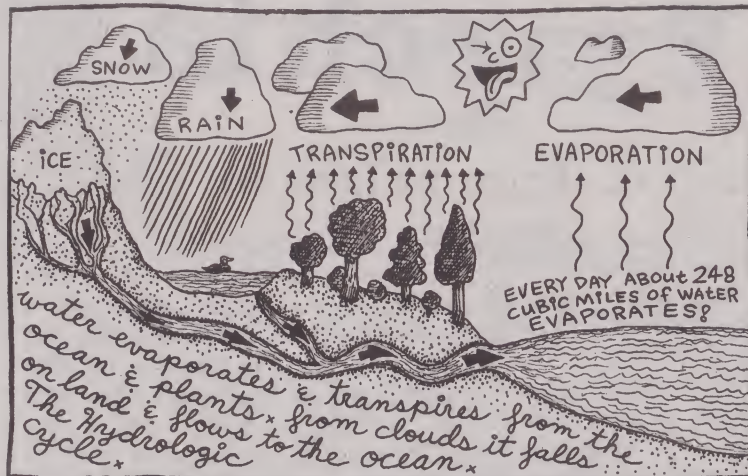 SNOW
RAIN
ICE
TRANSPIRATION
EVAPORATION
EVERY DAY ABOUT 248
CUBIC MILES OF WATER
EVAPORATES!
water evaporates & transpires from the
ocean & plants. from clouds it falls
on land & flows to the ocean.
The Hydrologic
cycle.